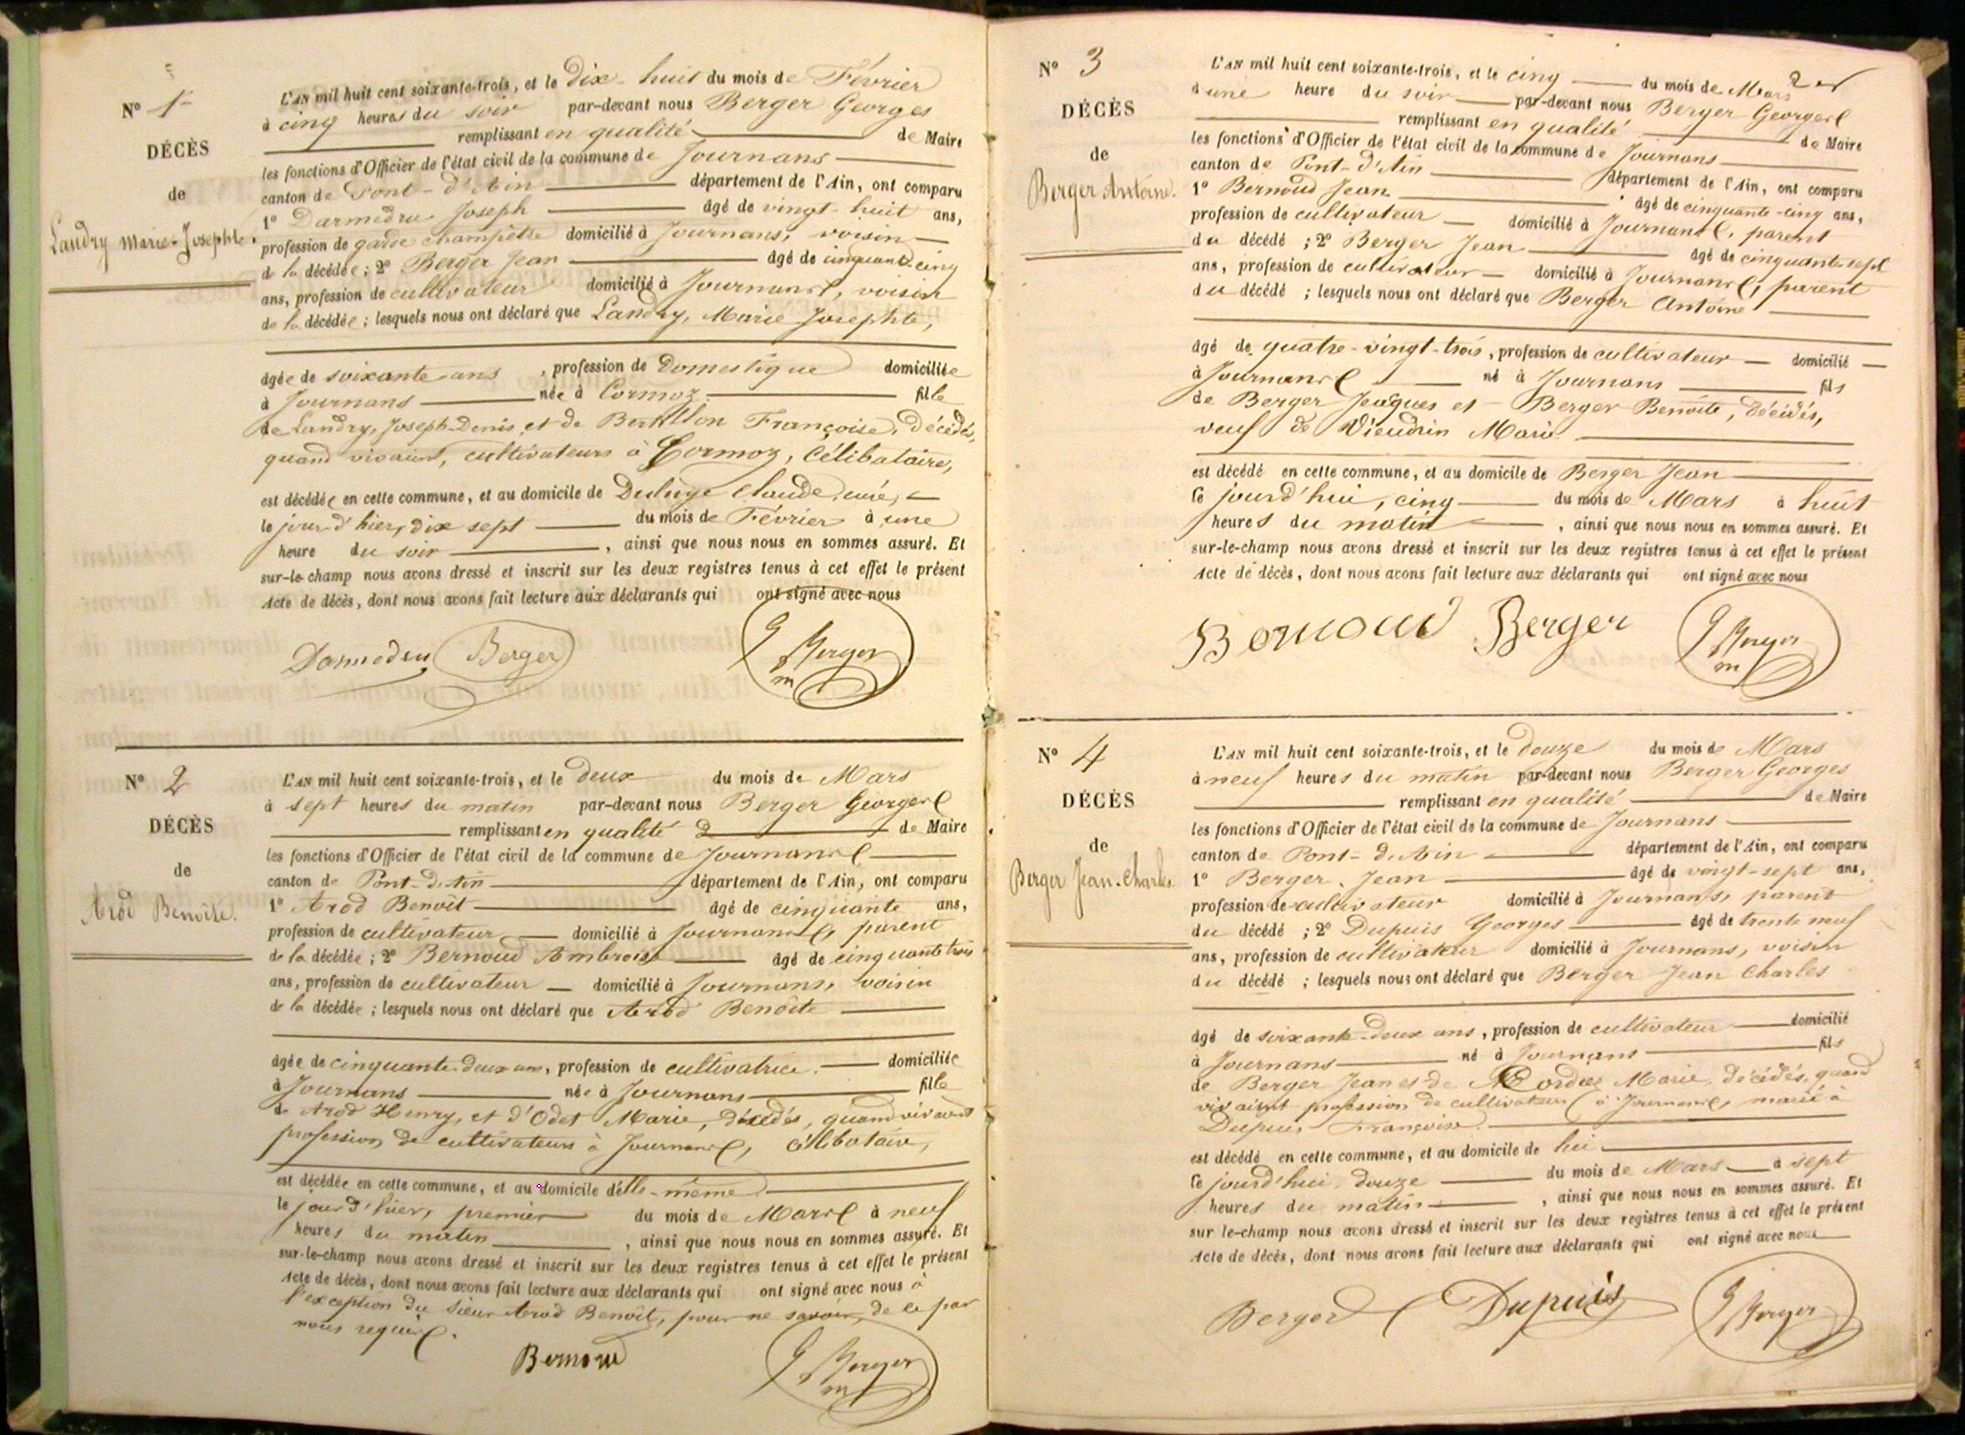 Nº 1
DÉCÈS
de
Landry Marie-Josephte.
L'AN mil huit cent soixante-trois, et le dix-huit du mois de Février
à cinq heures du soir par-devant nous Berger Georges
remplissant en qualité de Maire
les fonctions d'Officier de l'état civil de la commune de Journans
canton de Pont-d'Ain département de l'Ain, ont comparu
1º Darmedru Joseph âgé de vingt-huit ans,
profession de garde champêtre domicilié à Journans, voisin
de la décédée ; 2º Berger Jean âgé de cinquante-cinq
ans, profession de cultivateur domicilié à Journans, voisin
de la décédée ; lesquels nous ont déclaré que Landry, Marie Josephte,
âgée de soixante ans, profession de Domestique domiciliée
à Journans née à Cormoz fille
de Landry, Joseph-Denis et de Françoise, décédés,
quand vivaient, cultivateurs à Cormoz, Célibataire,
est décédée en cette commune, et au domicile de Claude, curé,
le jour d'hier, dix sept du mois de Février à une
heure du soir, ainsi que nous nous en sommes assuré. Et
sur-le-champ nous avons dressé et inscrit sur les deux registres tenus à cet effet le présent
Acte de décès, dont nous avons fait lecture aux déclarants qui ont signé avec nous
Darmedru Berger G Berger
m
Nº 2
DÉCÈS
de
Arod Benoîte.
L'AN mil huit cent soixante-trois, et le deux du mois de Mars
à sept heures du matin par-devant nous Berger Georges
remplissant en qualité de Maire
les fonctions d'Officier de l'état civil de la commune de Journans
canton de Pont-d'Ain département de l'Ain, ont comparu
1º Arod Benoît âgé de cinquante ans,
profession de cultivateur domicilié à Journans, parent
de la décédée ; 2º Bernoud Ambroise âgé de cinquante trois
ans, profession de cultivateur domicilié à Journans, voisin
de la décédée ; lesquels nous ont déclaré que Arod Benoîte
âgée de cinquante-deux ans, profession de cultivatrice domiciliée
à Journans née à Journans fille
de Arod Henry, et d'Odet Marie, décédés, quand vivaient
profession de cultivateurs à Journans, célibataire,
est décédée en cette commune, et au domicile d'elle-même
le jour d'hier, premier du mois de Mars à neuf
heures du matin, ainsi que nous nous en sommes assuré. Et
sur-le-champ nous avons dressé et inscrit sur les deux registres tenus à cet effet le présent
Acte de décès, dont nous avons fait lecture aux déclarants qui ont signé avec nous à
l'exception du sieur Arod Benoît, pour ne savoir, de ce par
nous requis.
Bernoud G Berger
m
2
Nº 3
DÉCÈS
de
Berger Antoine.
L'AN mil huit cent soixante-trois, et le cinq du mois de Mars
à une heure du soir par-devant nous Berger Georges
remplissant en qualité de Maire
les fonctions d'Officier de l'état civil de la commune de Journans
canton de Pont-d'Ain département de l'Ain, ont comparu
1º Bernoud Jean âgé de cinquante-cinq ans,
profession de cultivateur domicilié à Journans, parent
du décédé ; 2º Berger Jean âgé de cinquante-sept
ans, profession de cultivateur domicilié à Journans, parent
du décédé ; lesquels nous ont déclaré que Berger Antoine
âgé de quatre-vingt-trois, profession de cultivateur domicilié
à Journans né à Journans fils
de Berger Jacques et Berger Benoîte, Décédés,
veuf de Vieudrin Marie
est décédé en cette commune, et au domicile de Berger Jean
le jourd'hui, cinq du mois de Mars à huit
heures du matin, ainsi que nous nous en sommes assuré. Et
sur-le-champ nous avons dressé et inscrit sur les deux registres tenus à cet effet le présent
Acte de décès, dont nous avons fait lecture aux déclarants qui ont signé avec nous
Bernoud Berger G Berger
m
Nº 4
DÉCÈS
de
Berger Jean-Charles
L'AN mil huit cent soixante-trois, et le douze du mois de Mars
à neuf heures du matin par-devant nous Berger Georges
remplissant en qualité de Maire
les fonctions d'Officier de l'état civil de la commune de Journans
canton de Pont-d'Ain département de l'Ain, ont comparu
1º Berger, Jean âgé de vingt-sept ans,
profession de cultivateur domicilié à Journans, parent
du décédé ; 2º Dupuis Georges âgé de trente neuf
ans, profession de cultivateur domicilié à Journans, voisin
du décédé ; lesquels nous ont déclaré que Berger Jean Charles
âgé de soixante-deux ans, profession de cultivateur domicilié
à Journans né à Journans fils
de Berger Jean et de Marie, décédés, quand
vivaient profession de cultivateurs à Journans, marié à
Dupuis Françoise
est décédé en cette commune, et au domicile de lui
le jourd'hui douze du mois de Mars à sept
heures du matin, ainsi que nous nous en sommes assuré. Et
sur le-champ nous avons dressé et inscrit sur les deux registres tenus à cet effet le présent
Acte de décès, dont nous avons fait lecture aux déclarants qui ont signé avec nous
Berger Dupuis G Berger